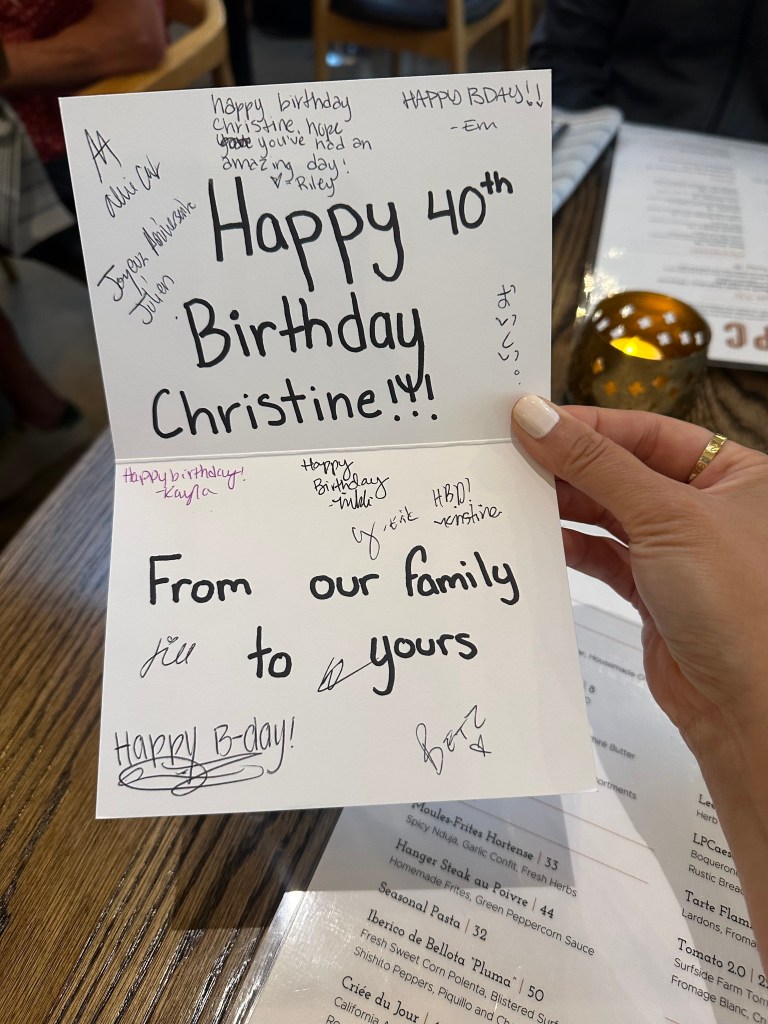 happy birthday
christine, hope
you've had an
amazing day!
- Riley
HAPPY BDAY!!
- Em
Joyeux Anniversaire
Julien
Happy 40th
Birthday
Christine!!!
Happy birthday!
- Kayla
Happy
Birthday
- Nikki
- Erik
HBD!
- Kristine
From our family
to yours
Jill
Happy B-day!
BETZ
Moules-Frites Hortense | 33
Spicy Nduja, Garlic Confit, Fresh Herbs
Hanger Steak au Poivre | 44
Homemade Frites, Green Peppercorn Sauce
Seasonal Pasta | 32
Iberico de Bellota "Pluma" | 50
Fresh Sweet Corn Polenta, Blistered
Shishito Peppers, Piquillo and
Criée du Jour
California
Butter
Herb
LPCaes
Boqueron
Rustic Brea
Tarte Flam
Lardons, Froma
Tomato 2.0 | 2
Surfside Farm Tom
Fromage Blanc, Cr